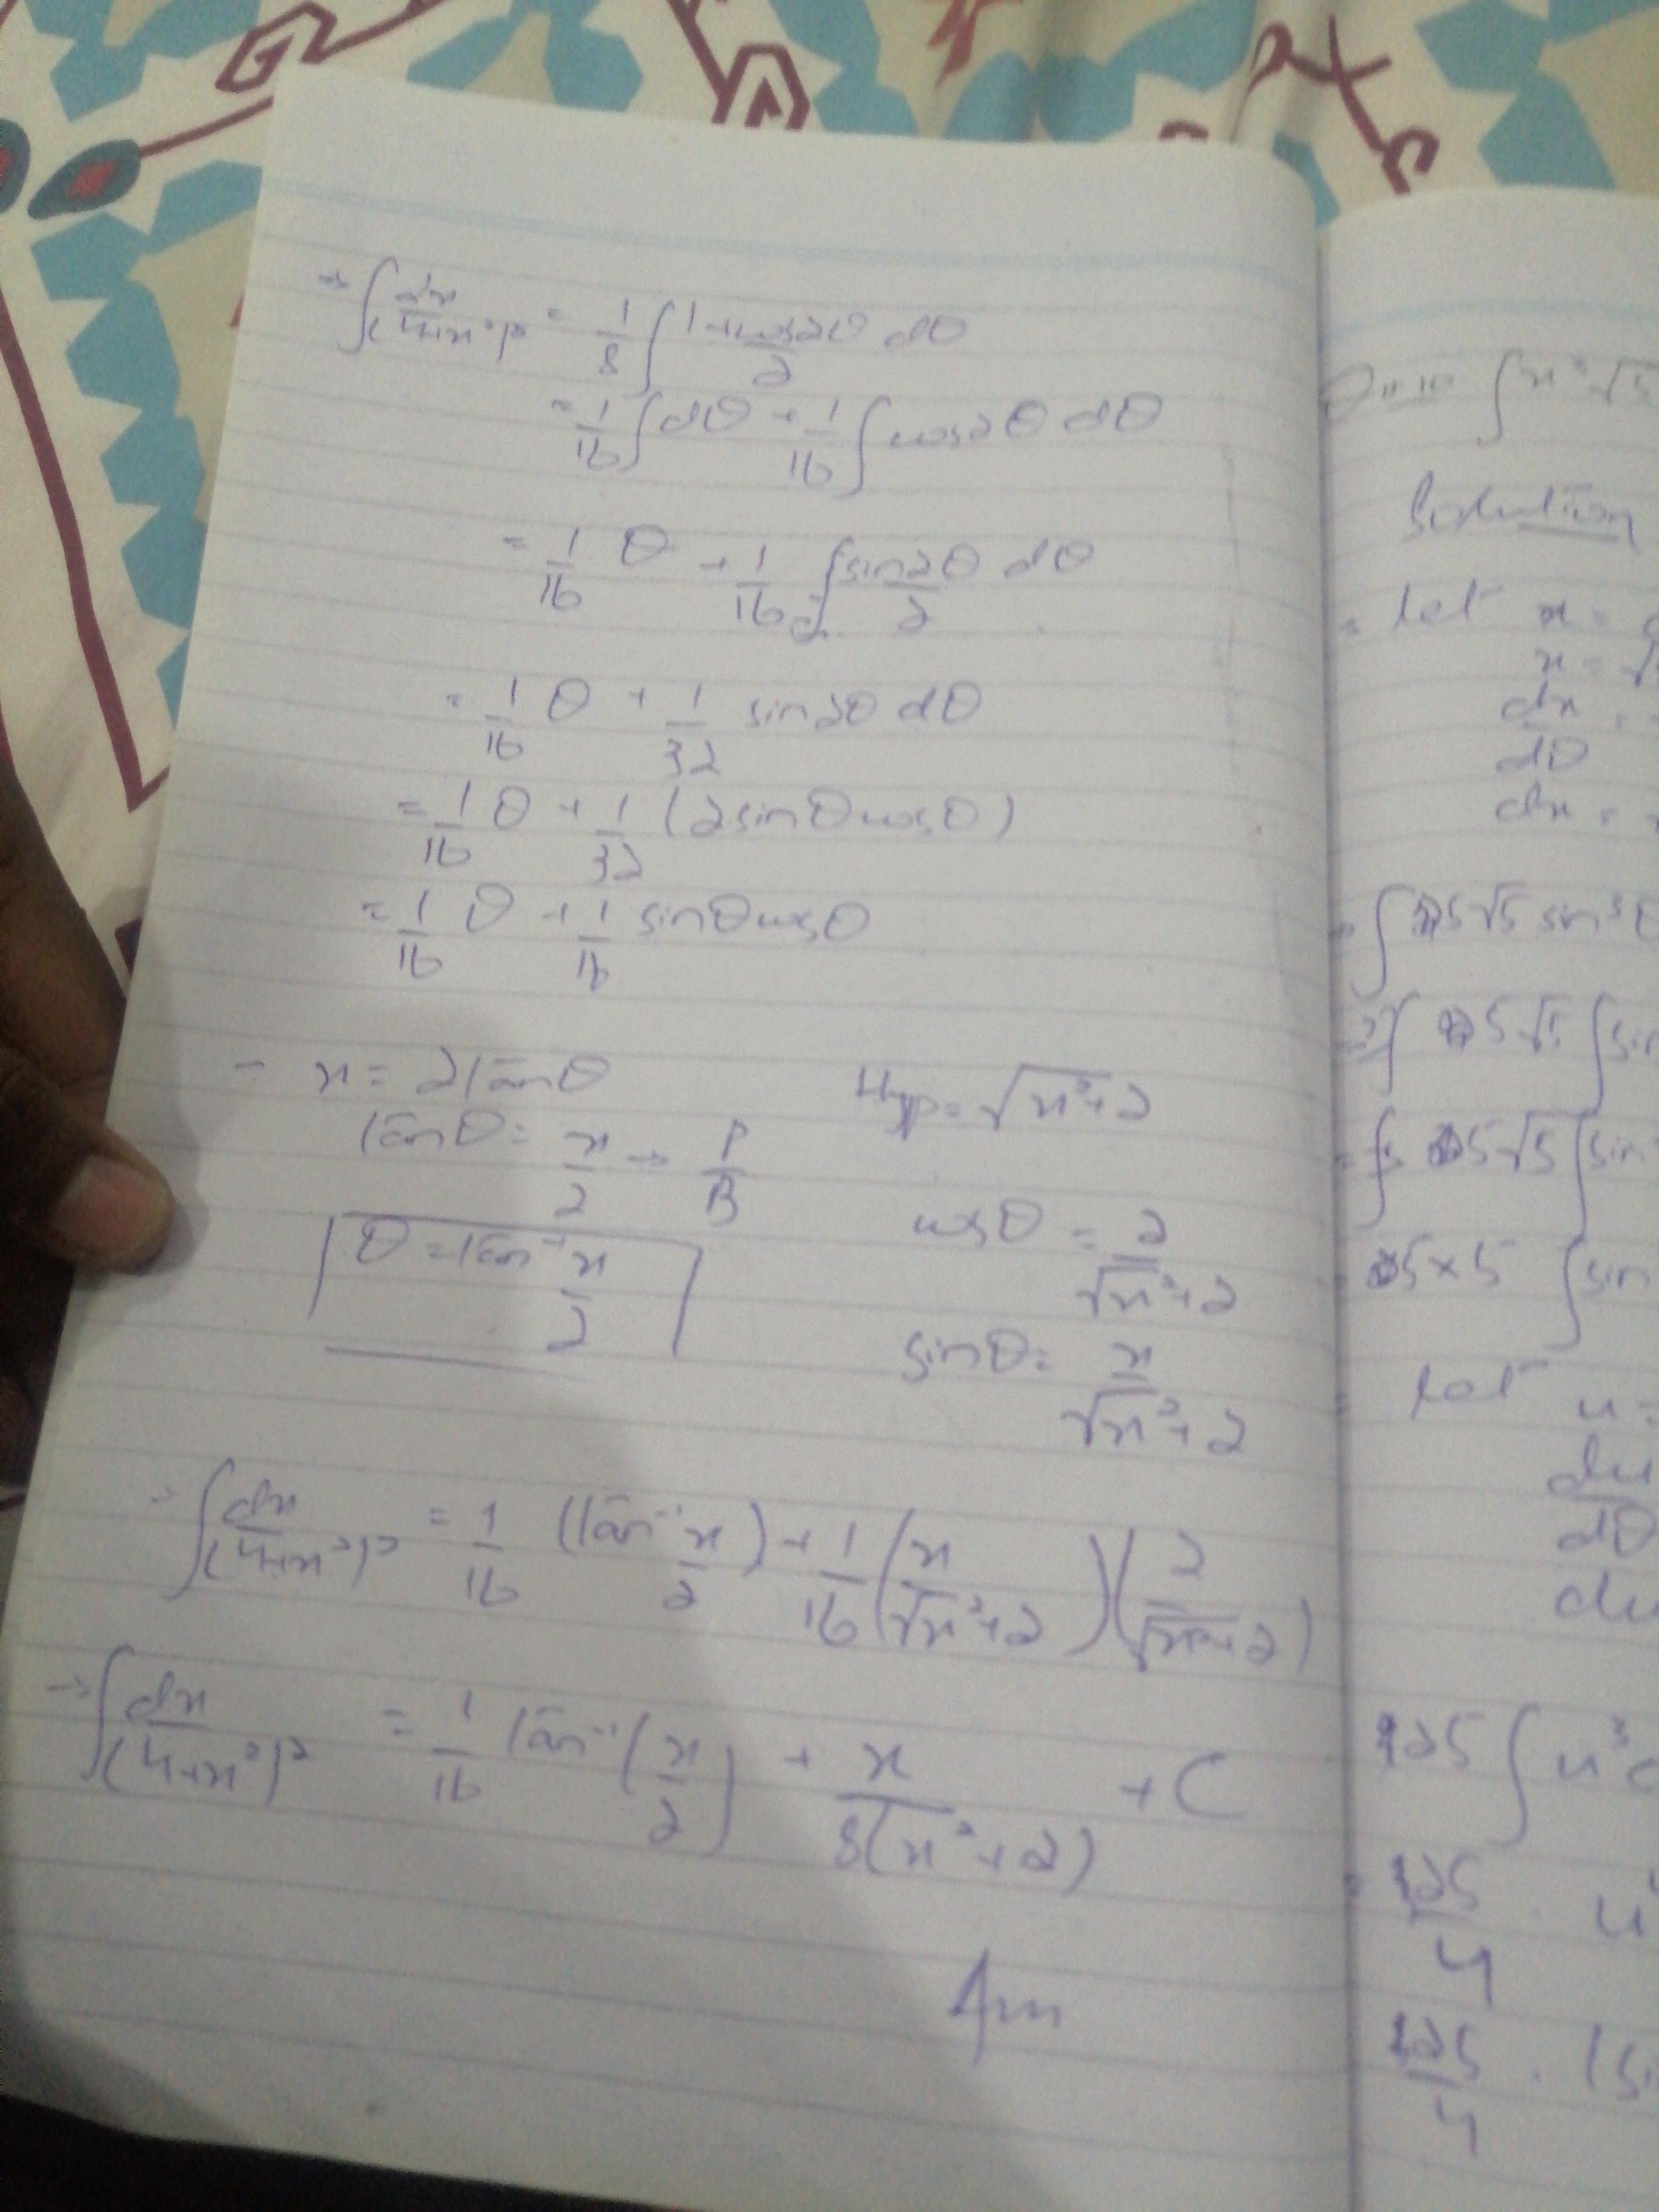 → ∫ dx/(4+x²)² = 1/8 ∫ (1+cos2θ)/2 dθ
= 1/16 ∫ dθ + 1/16 ∫ cos2θ dθ
= 1/16 θ + 1/16 ∫ sin2θ/2 dθ
= 1/16 θ + 1/32 sin2θ dθ
= 1/16 θ + 1/32 (2sinθcosθ)
= 1/16 θ + 1/16 sinθcosθ
- x = 2tanθ
tanθ = x/2 → P/B
θ = tan⁻¹ x/2
Hyp = √x²+2
cosθ = 2/√x²+2
sinθ = x/√x²+2
→ ∫ dx/(4+x²)² = 1/16 (tan⁻¹ x/2) + 1/16 (x/√x²+2)(2/√x²+2)
→ ∫ dx/(4+x²)² = 1/16 tan⁻¹(x/2) + x/8(x²+2) + C
Ans
Solution
let x =
x = √
dx/dθ =
dx =
∫ 5√5 sin³θ
5√5 ∫ sin
5√5 ∫ sin
5×5 ∫ sin
let u =
du/dθ
du
125 ∫ u³
= 125/4 . u
125/4 . (si